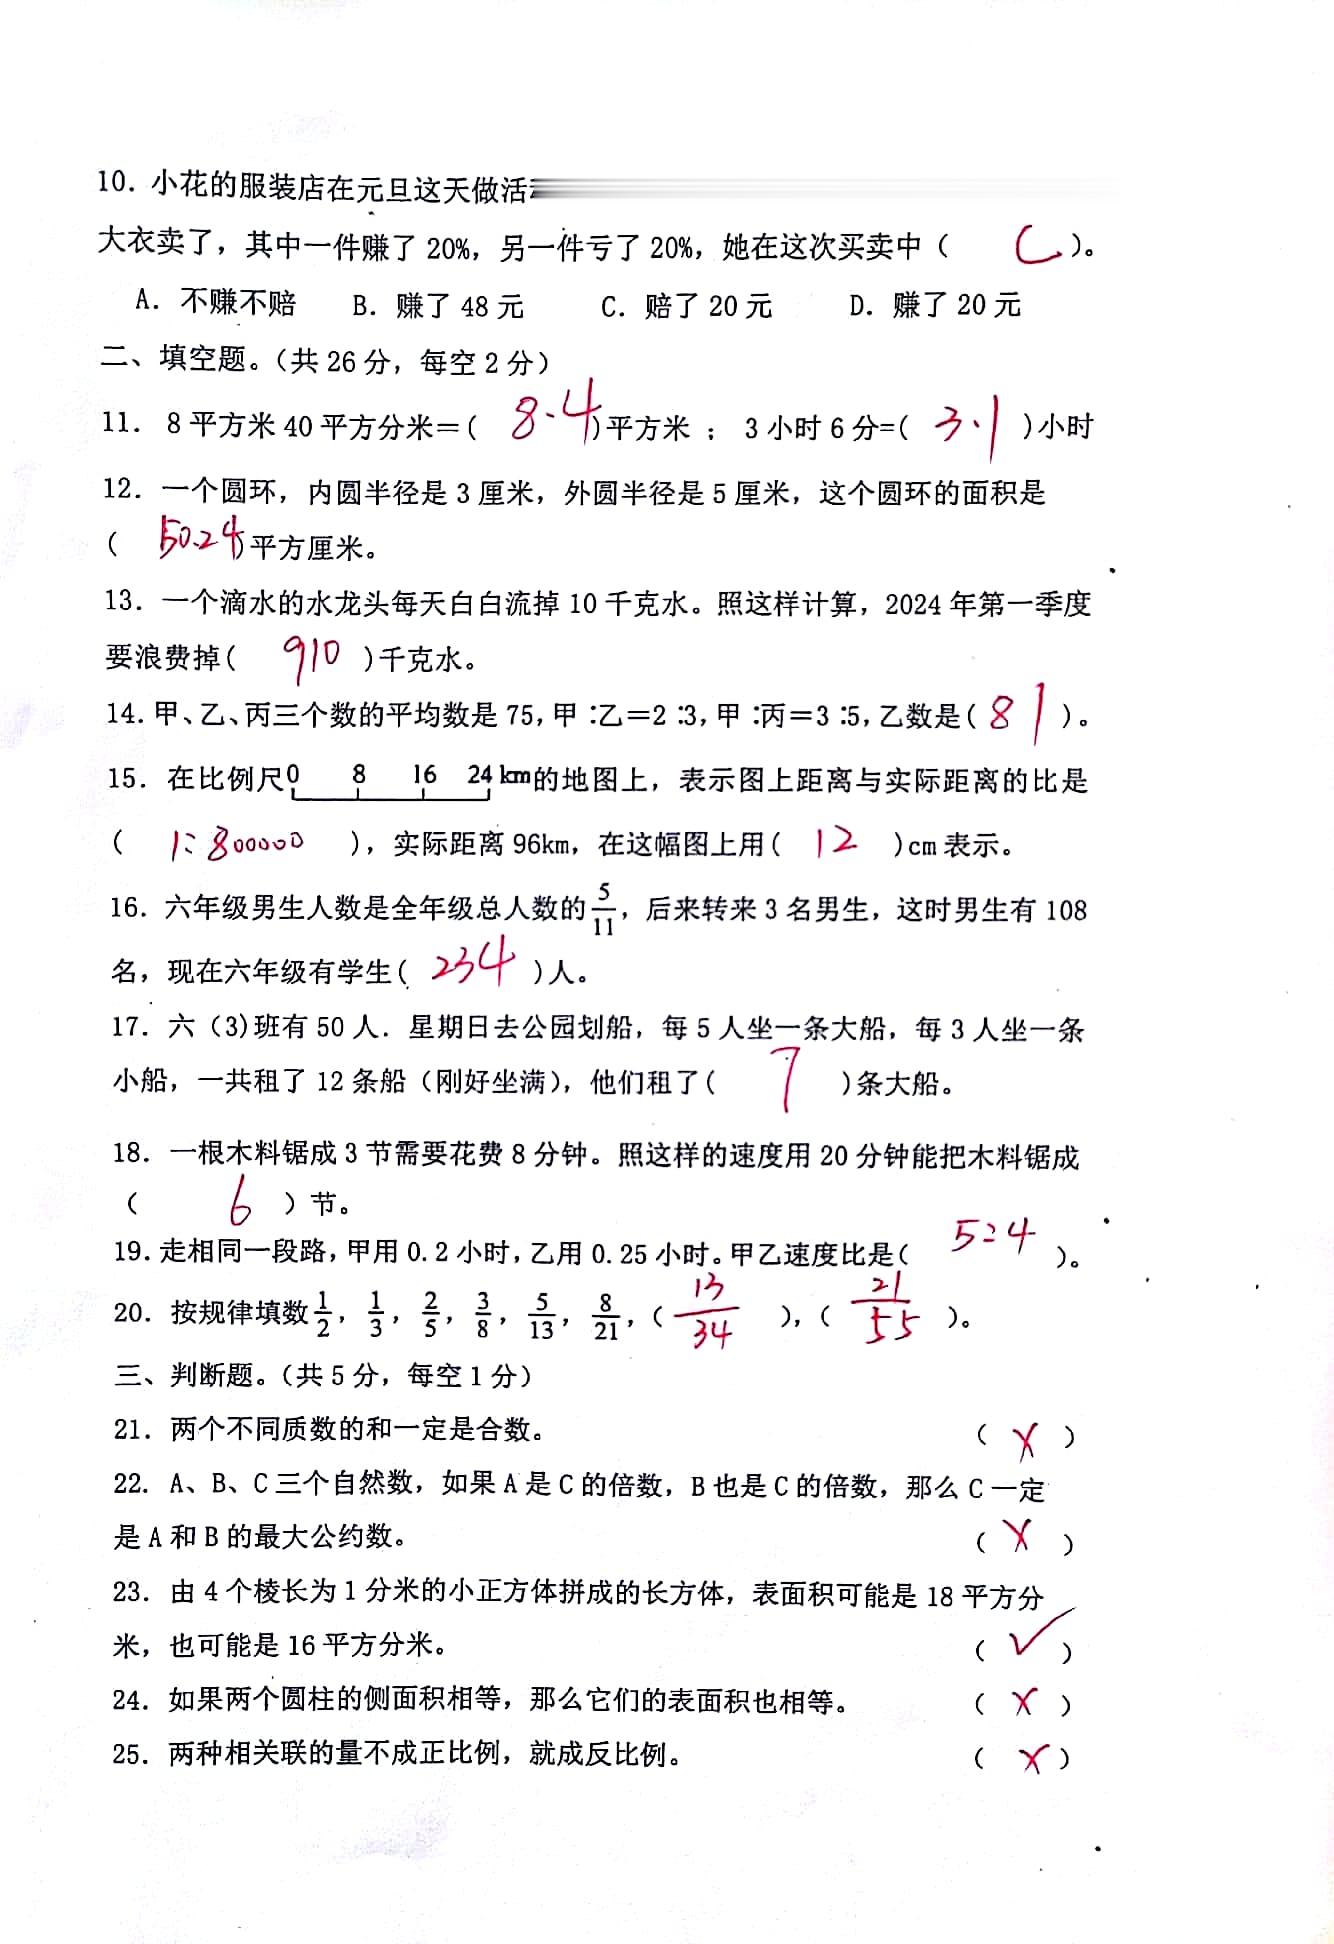 10. 小花的服装店在元旦这天做活
大衣卖了，其中一件赚了 20%，另一件亏了 20%，她在这次买卖中（ C ）。
A. 不赚不赔 B. 赚了 48 元 C. 赔了 20 元 D. 赚了 20 元
二、填空题。（共 26 分，每空 2 分）
11. 8 平方米 40 平方分米＝( 8.4 )平方米 ； 3 小时 6 分=( 3.1 )小时
12. 一个圆环，内圆半径是 3 厘米，外圆半径是 5 厘米，这个圆环的面积是
( 50.24 )平方厘米。
13. 一个滴水的水龙头每天白白流掉 10 千克水。照这样计算，2024 年第一季度
要浪费掉( 910 )千克水。
14. 甲、乙、丙三个数的平均数是 75，甲∶乙＝2∶3，甲∶丙＝3∶5，乙数是( 81 )。
15. 在比例尺 0 8 16 24 km 的地图上，表示图上距离与实际距离的比是
( 1:800000 )，实际距离 96km，在这幅图上用( 12 )cm 表示。
16. 六年级男生人数是全年级总人数的 5/11，后来转来 3 名男生，这时男生有 108
名，现在六年级有学生( 234 )人。
17. 六（3)班有 50 人. 星期日去公园划船，每 5 人坐一条大船，每 3 人坐一条
小船，一共租了 12 条船（刚好坐满），他们租了( 7 )条大船。
18. 一根木料锯成 3 节需要花费 8 分钟。照这样的速度用 20 分钟能把木料锯成
（ 6 ）节。
19. 走相同一段路，甲用 0.2 小时，乙用 0.25 小时。甲乙速度比是( 5:4 )。
20. 按规律填数 1/2，1/3，2/5，3/8，5/13，8/21，( 13/34 )，( 21/55 )。
三、判断题。（共 5 分，每空 1 分）
21. 两个不同质数的和一定是合数。 （ × ）
22. A、B、C 三个自然数，如果 A 是 C 的倍数，B 也是 C 的倍数，那么 C 一定
是 A 和 B 的最大公约数。 （ × ）
23. 由 4 个棱长为 1 分米的小正方体拼成的长方体，表面积可能是 18 平方分
米，也可能是 16 平方分米。 （ √ ）
24. 如果两个圆柱的侧面积相等，那么它们的表面积也相等。 （ × ）
25. 两种相关联的量不成正比例，就成反比例。 （ × ）